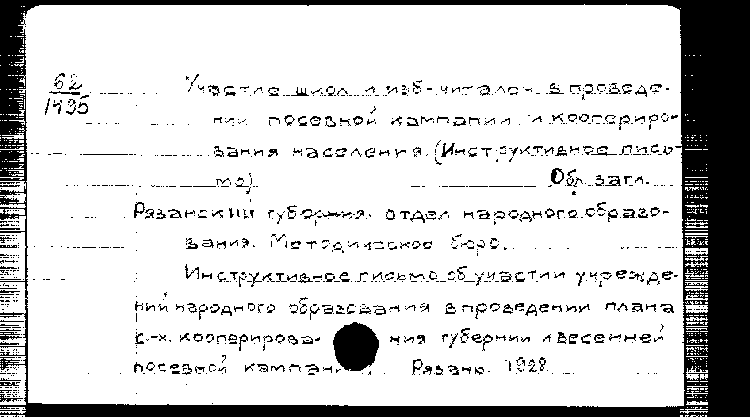 62
1495
Участие школ и изб-читален в проведе-
нии посевной кампании и коопериро-
вания населения. (Инструктивное пись-
мо) Обл. загл.
Рязанский губерния. отдел народного образо-
вания. Методическое бюро.
Инструктивное письмо об участии учрежде-
ний народного образования в проведении плана
с.-х. кооперирова- ния губернии и весенней
посевной кампании. Рязань. 1928